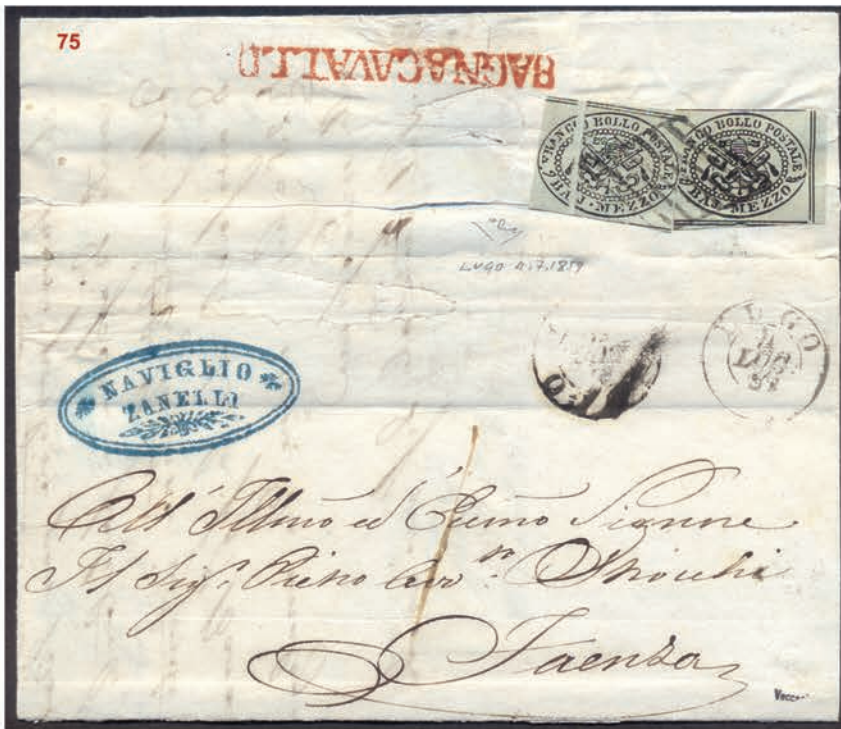 75
BAGNACAVALLO
FRANCO BOLLO POSTALE
BAJ. MEZZO
FRANCO BOLLO POSTALE
BAJ. MEZZO
LUGO 4.7.1859
LUGO
LUG
NAVIGLIO
ZANELLI
All' Illmo ed Ecmo Signore
Il Sig. Pietro Avv. Strocchi
Faenza